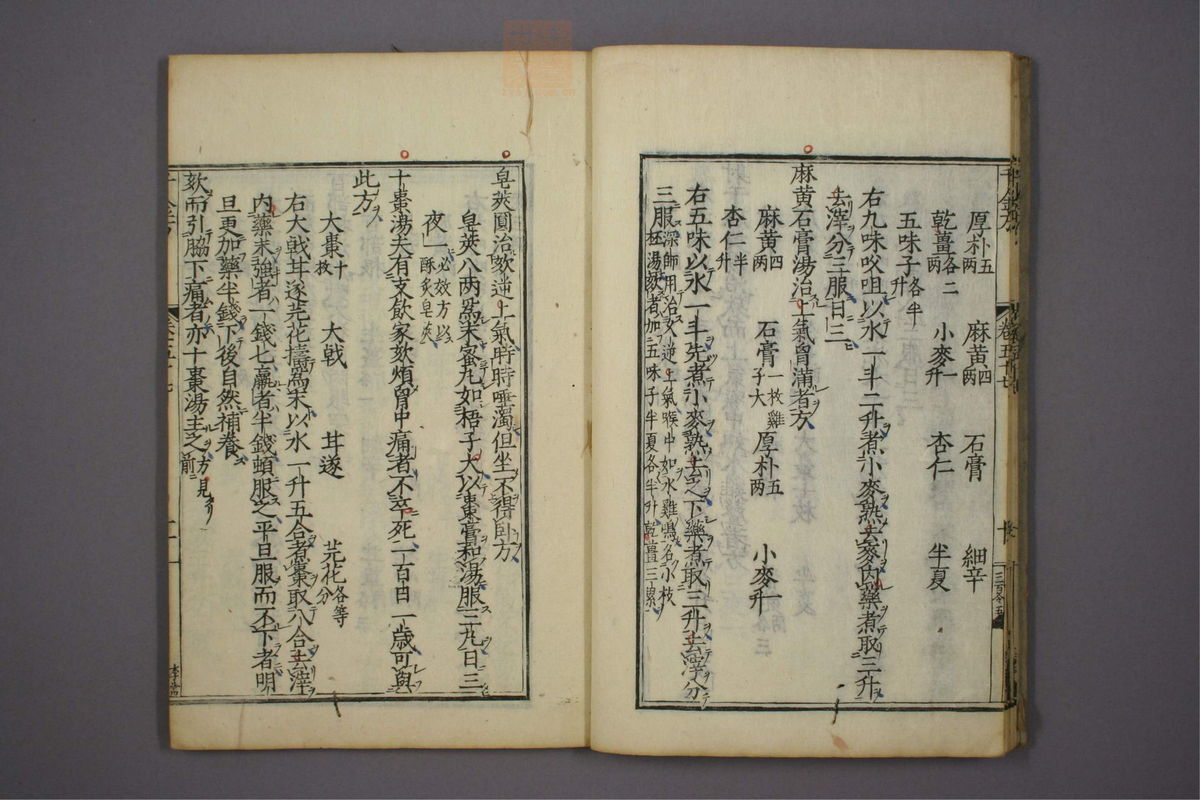 厚朴五兩 麻黄四兩 石膏 細辛
乾薑各二兩 小麥一升 杏仁 半夏
五味子各半升
右九味㕮咀以水一斗二升煮小麥熟去麥内藥煮取三升
去滓分三服日三
麻黄石膏湯治上氣胷滿者方
麻黄四兩 石膏一枚雞子大 厚朴五兩 小麥一升
杏仁半升
右五味以水一斗先煮小麥熟去之下藥煮取三升去滓分
三服深師用治欬逆上氣喉中如水雞鳴名小投
杯湯欬者加五味子半夏各半升乾薑三累
皂莢圓治欬逆上氣時時唾濁但坐不得卧方
皂莢八两爲末蜜丸如梧子大以棗膏和湯服三丸日三
夜一必效方以
酥炙皂莢
十棗湯夫有支飲家欬煩胷中痛者不卒死一百日一歲可與
此方
大棗十枚 大戟 甘遂 芫花各等分
右大戟甘遂芫花擣爲末以水一升五合煮棗取八合去滓
内藥末強者一錢匕羸者半錢頓服之平旦服而不下者明
旦更加藥半錢下後自然補養
欬而引脇下痛者亦十棗湯主之方見前